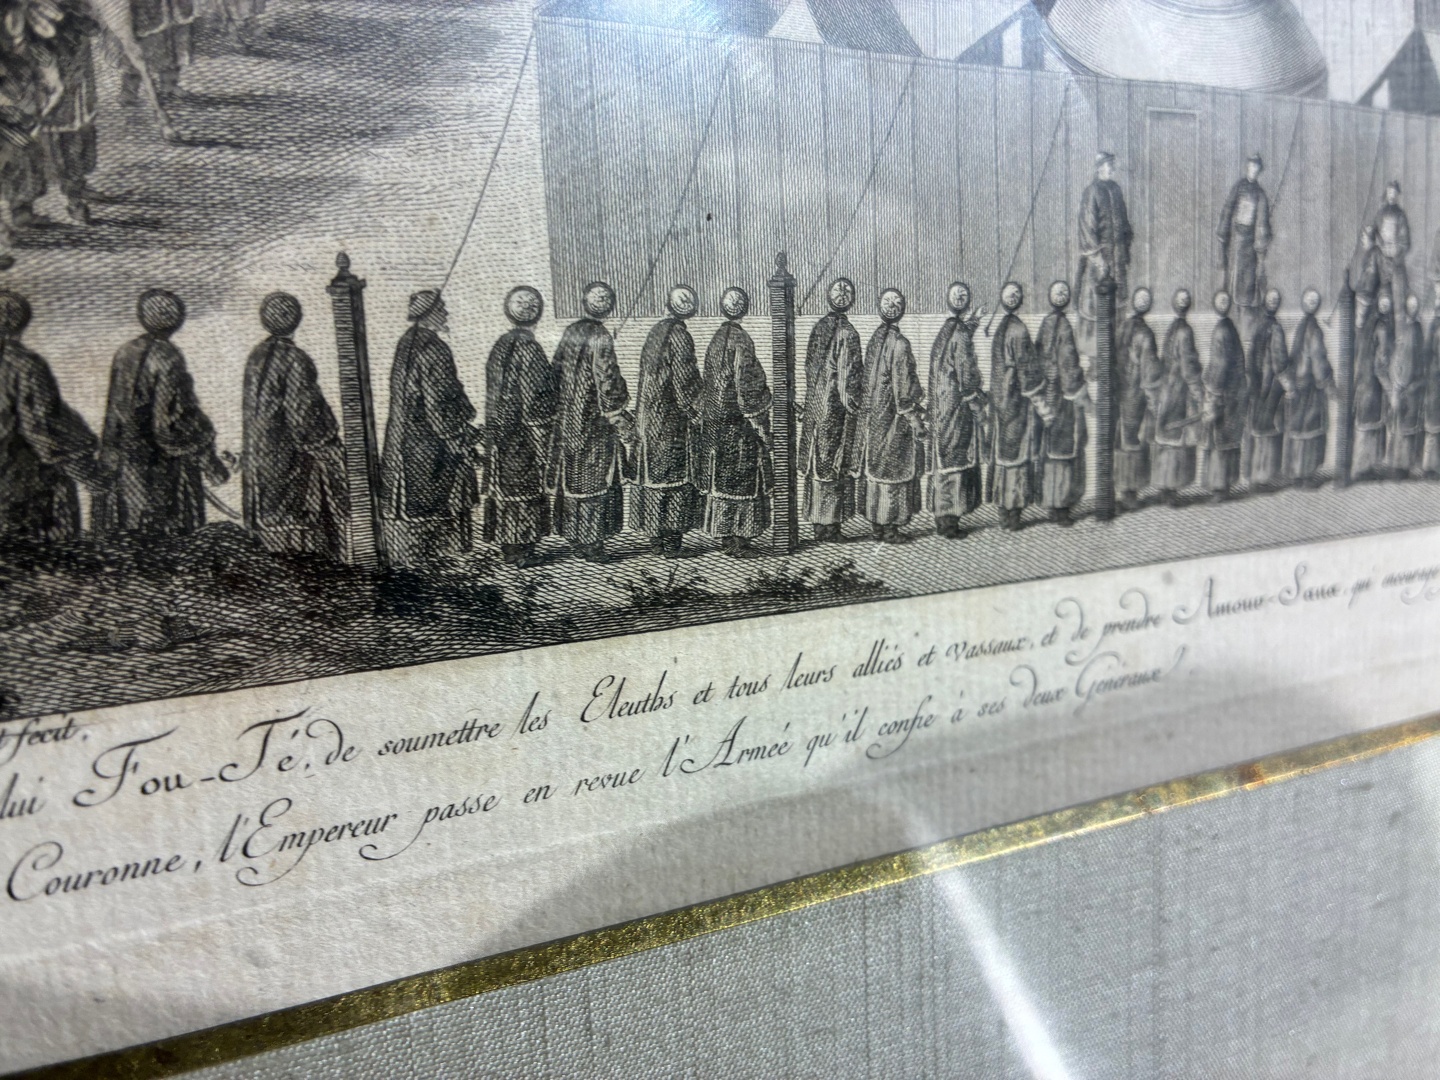 fecit.
lui Fou-Té, de soumettre les Eleuths et tous leurs alliés et vassaux, et de prendre Amour-Sana, qui
Couronne, l'Empereur passe en revue l'Armée qu'il confie à ses deux Généraux.